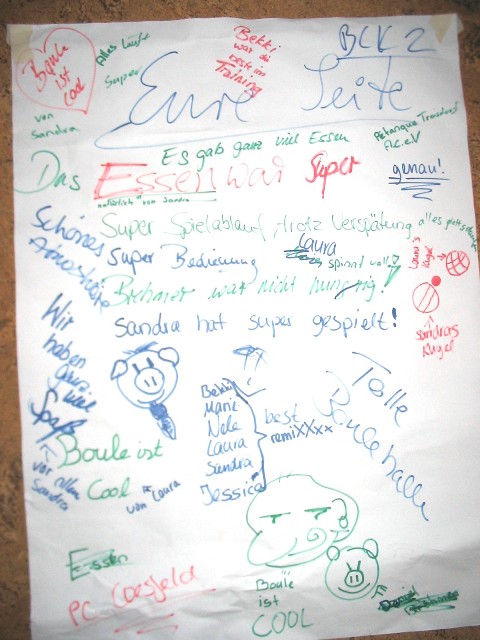 BCK 2
Boule
ist
cool
von
Sandra
Alles Läuft
Super
Bekki
war die
beste im
Training
Eure Seite
Es gab ganz viel Essen
Pétanque
A.C. e.V
genau!
Das Essen war super
natürlich von Sandra
Schönes
Super Spielablauf, trotz Verspätung
alles
Super Bedienung
Laura
spinnt voll
Laura's
Kugel
Brehmer war nicht hungrig!
Sandra hat super gespielt!
Sandras
Kugel
Wir
haben
ganz
viel
Spaß
vor allem
Sandra
Bekki
Marie
Nele
Laura
Sandra
Jessica
best
remiXXxx
Tolle
Boulehalle
Boule ist
Cool
von Laura
Essen
PC Coesfeld
Boule
ist
COOL
Daniel